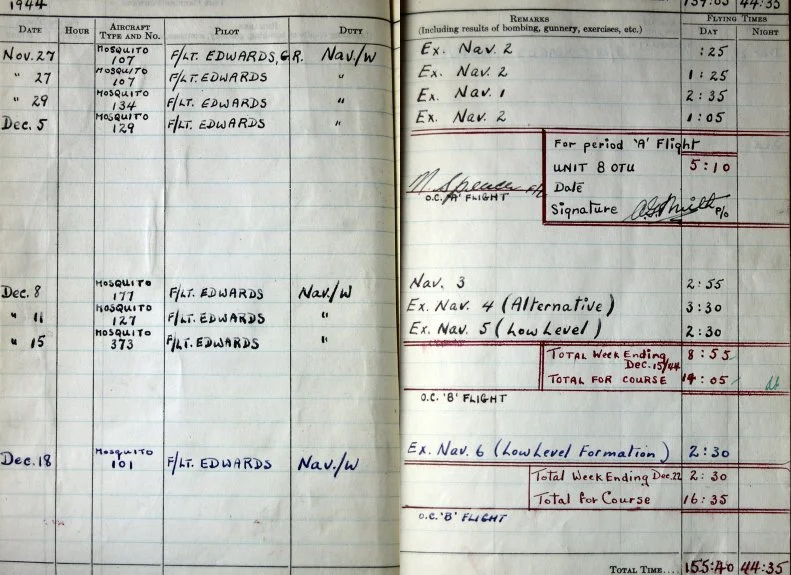 1944
139:05 44:35
DATE HOUR AIRCRAFT TYPE AND NO. PILOT DUTY REMARKS (Including results of bombing, gunnery, exercises, etc.) FLYING TIMES DAY NIGHT
Nov. 27 MOSQUITO 107 F/LT. EDWARDS, G.R. Nav./W Ex. Nav. 2 :25
" 27 MOSQUITO 107 F/LT. EDWARDS " Ex. Nav. 2 1:25
" 29 MOSQUITO 134 F/LT. EDWARDS " Ex. Nav. 1 2:35
Dec. 5 MOSQUITO 129 F/LT. EDWARDS " Ex. Nav. 2 1:05
For period 'A' Flight
UNIT 8 OTU 5:10
Date
Signature P/O
O.C. 'A' FLIGHT
Dec. 8 MOSQUITO 177 F/LT. EDWARDS Nav./W Nav. 3 2:55
" 11 MOSQUITO 127 F/LT. EDWARDS " Ex. Nav. 4 (Alternative) 3:30
" 15 MOSQUITO 373 F/LT. EDWARDS " Ex. Nav. 5 (Low Level) 2:30
TOTAL Week Ending Dec. 15/44 8:55
TOTAL FOR COURSE 14:05
O.C. 'B' FLIGHT
Dec. 18 MOSQUITO 101 F/LT. EDWARDS Nav./W Ex. Nav. 6 (Low Level Formation) 2:30
Total Week Ending Dec. 22 2:30
Total for Course 16:35
O.C. 'B' FLIGHT
TOTAL TIME.... 155:40 44:35